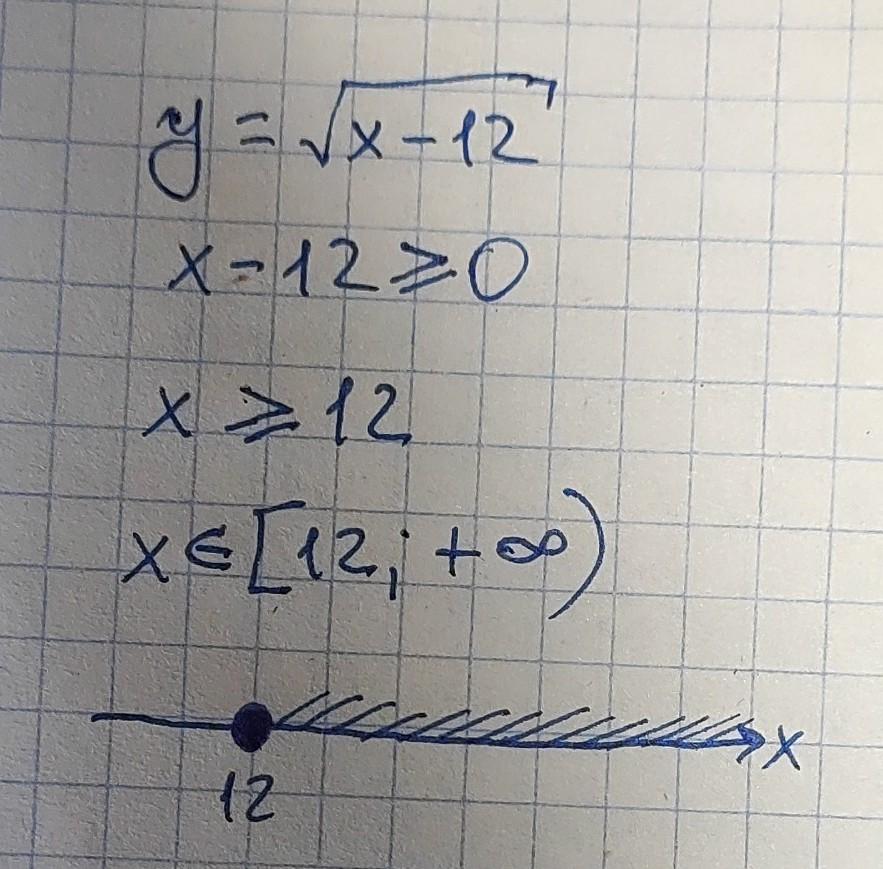 y = √(x - 12)
x - 12 ⩾ 0
x ⩾ 12
x ∈ [12; + ∞)
x
12